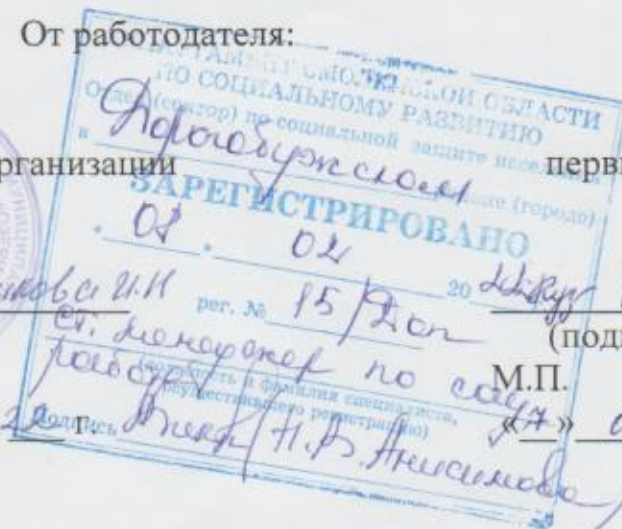 От работодателя:
ДЕПАРТАМЕНТ СМОЛЕНСКОЙ ОБЛАСТИ
ПО СОЦИАЛЬНОМУ РАЗВИТИЮ
Отдел (сектор) по социальной защите населения
в Дорогобужском районе (городе)
рганизации перви
ЗАРЕГИСТРИРОВАНО
02 20 22
кова И.Н рег. № 15/Доп
(подп
ст. менеджер по соц.
работе
(должность и фамилия специалиста,
осуществившего регистрацию)
М.П.
22 г. Подпись /Н.В. Анисимова/ «17»